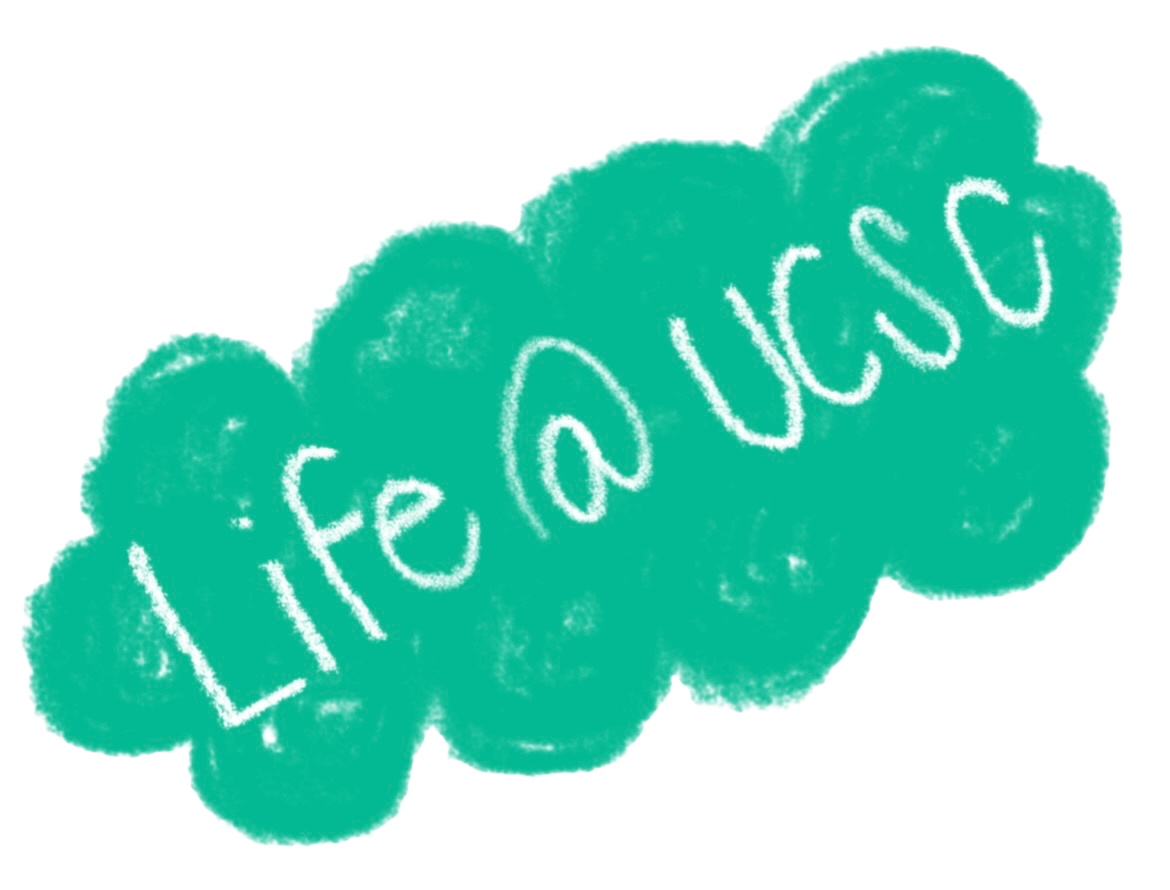 Life @ UCSC